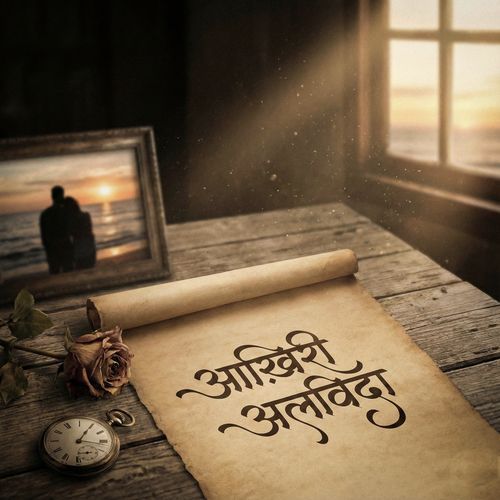 आख़िरी
अलविदा